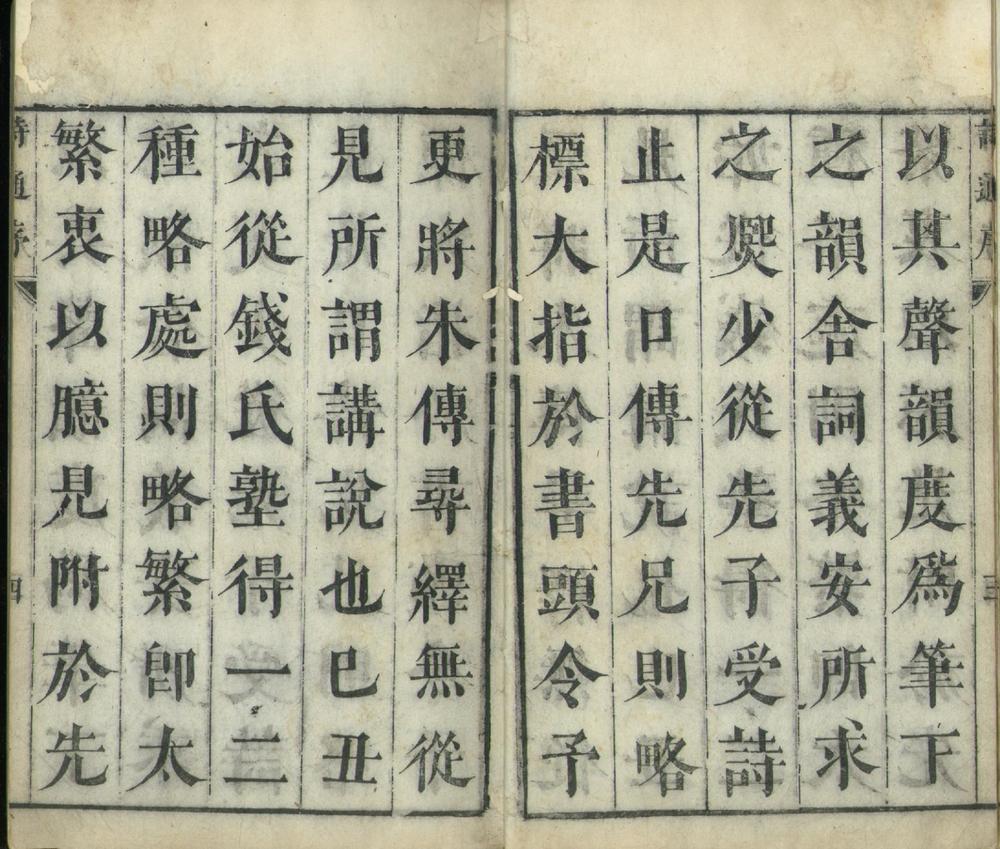 以其聲韻度爲筆下
之韻舍詞義安所求
之煛少從先子受詩
止是口傳先兄則略
標大指於書頭令予
更將朱傳尋繹無從
見所謂講說也已丑
始從錢氏塾得一二
種略處則略繁卽太
繁衷以臆見附於先
詩通序
四